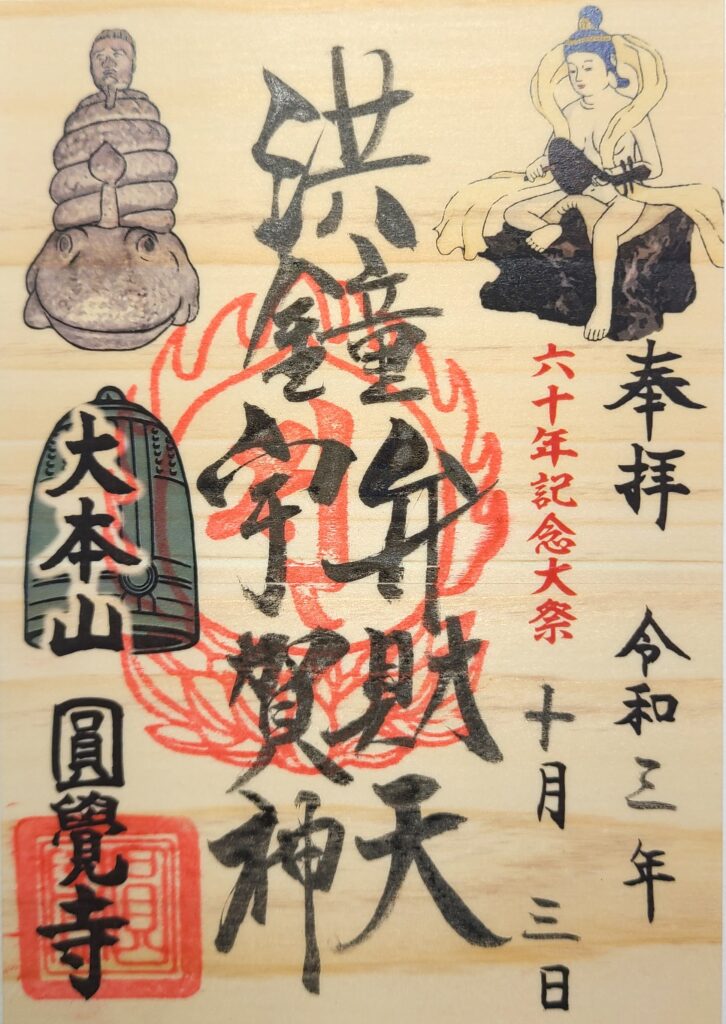 奉拝 令和三年
十月三日
六十年記念大祭
洪鐘
弁財天
宇賀神
大本山
圓覺寺